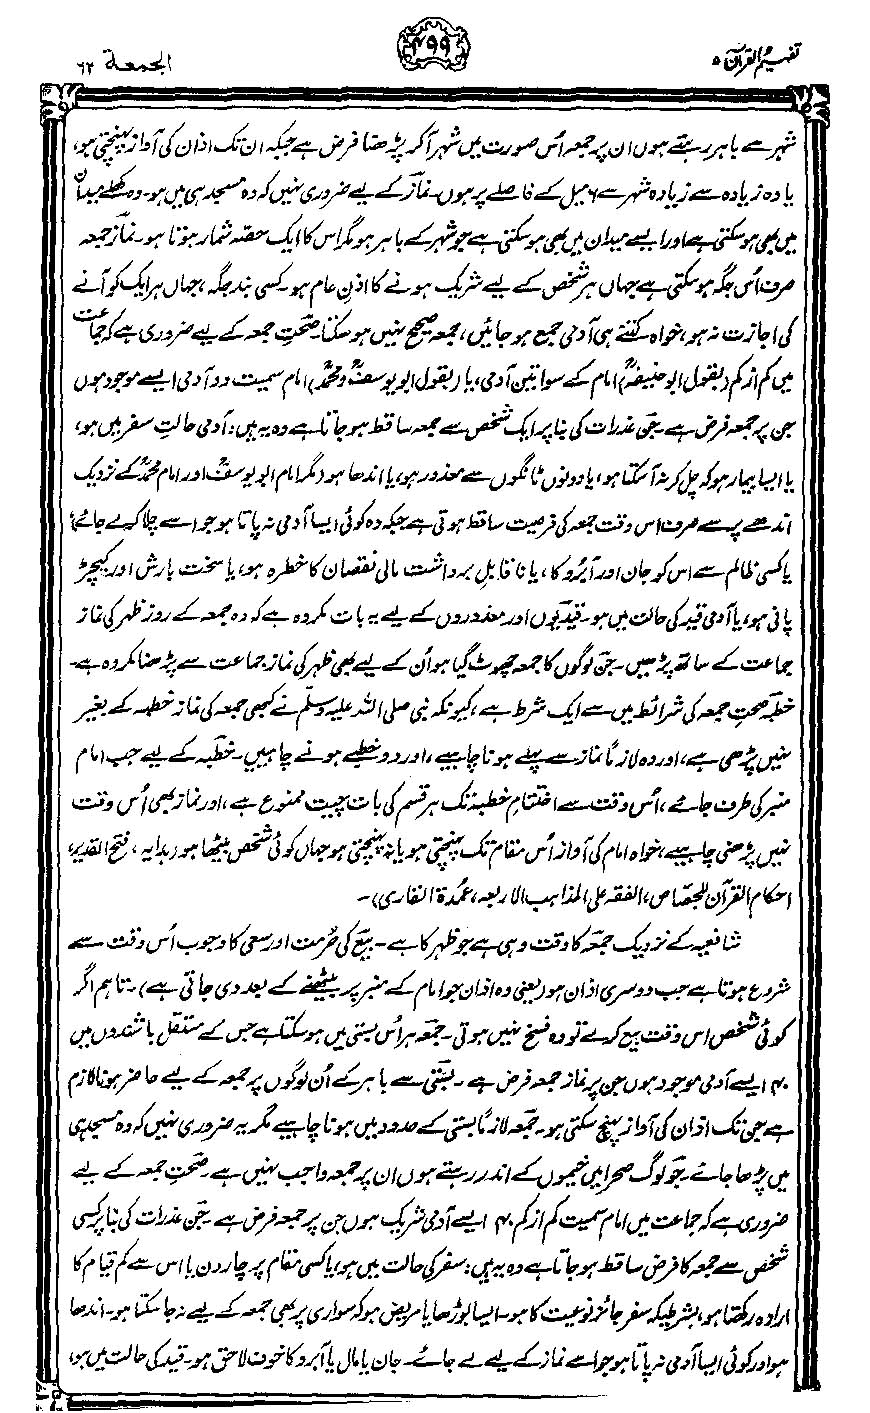 تفہیم القرآن ۵
۴۹۹
الجمعۃ ۶۲
شہر سے باہر رہتے ہوں ان پر جمعہ اُس صورت میں شہر آکر پڑھنا فرض ہے جبکہ ان تک اذان کی آواز پہنچتی ہو،
یا وہ زیادہ سے زیادہ شہر سے ۶ میل کے فاصلے پر ہوں۔ نماز کے لیے ضروری نہیں کہ وہ مسجد ہی میں ہو۔ وہ کھلے میدان
میں بھی ہو سکتی ہے اور ایسے میدان میں بھی ہو سکتی ہے جو شہر کے باہر ہو مگر اس کا ایک حصہ شمار ہوتا ہو۔ نماز جمعہ
صرف اُس جگہ ہو سکتی ہے جہاں ہر شخص کے لیے شریک ہونے کا اذنِ عام ہو۔ کسی بند جگہ، جہاں ہر ایک کو آنے
کی اجازت نہ ہو، خواہ کتنے ہی آدمی جمع ہو جائیں، جمعہ صحیح نہیں ہو سکتا۔ صحتِ جمعہ کے لیے ضروری ہے کہ جماعت
میں کم از کم (بقول ابو حنیفہؒ) امام کے سوا تین آدمی، یا (بقول ابو یوسفؒ و محمدؒ) امام سمیت دو آدمی ایسے موجود ہوں
جن پر جمعہ فرض ہے۔ جن عذرات کی بنا پر ایک شخص سے جمعہ ساقط ہو جاتا ہے وہ یہ ہیں: آدمی حالتِ سفر میں ہو،
یا ایسا بیمار ہو کہ چل کر نہ آ سکتا ہو، یا دونوں ٹانگوں سے معذور ہو، یا اندھا ہو (مگر امام ابو یوسفؒ اور امام محمدؒ کے نزدیک
اندھے پر سے صرف اس وقت جمعہ کی فرضیت ساقط ہوتی ہے جبکہ وہ کوئی ایسا آدمی نہ پاتا ہو جو اسے چلا کر لے جائے)
یا کسی ظالم سے اس کو جان اور آبرو کا، یا ناقابلِ برداشت مالی نقصان کا خطرہ ہو، یا سخت بارش اور کیچڑ
پانی ہو، یا آدمی قید کی حالت میں ہو۔ قیدیوں اور معذوروں کے لیے یہ بات مکروہ ہے کہ وہ جمعہ کے روز ظہر کی نماز
جماعت کے ساتھ پڑھیں۔ جن لوگوں کا جمعہ چھوٹ گیا ہو اُن کے لیے بھی ظہر کی نماز جماعت سے پڑھنا مکروہ ہے۔
خطبہ صحتِ جمعہ کی شرائط میں سے ایک شرط ہے، کیونکہ نبی صلی اللہ علیہ وسلم نے کبھی جمعہ کی نماز خطبہ کے بغیر
نہیں پڑھی ہے، اور وہ لازماً نماز سے پہلے ہونا چاہیے، اور دو خطبے ہونے چاہییں۔ خطبہ کے لیے جب امام
منبر کی طرف جائے، اُس وقت سے اختتامِ خطبہ تک ہر قسم کی بات چیت ممنوع ہے، اور نماز بھی اُس وقت
نہیں پڑھنی چاہیے، خواہ امام کی آواز اُس مقام تک پہنچتی ہو یا نہ پہنچتی ہو جہاں کوئی شخص بیٹھا ہو (ہدایہ، فتح القدیر،
احکام القرآن للجصاص، الفقہ علی المذاہب الاربعہ، عمدۃ القاری)۔
شافعیہ کے نزدیک جمعہ کا وقت وہی ہے جو ظہر کا ہے۔ بیع کی حُرمت اور سعی کا وجوب اُس وقت سے
شروع ہوتا ہے جب دوسری اذان ہو (یعنی وہ اذان جو امام کے منبر پر بیٹھنے کے بعد دی جاتی ہے)۔ تاہم اگر
کوئی شخص اس وقت بیع کرے تو وہ فسخ نہیں ہوتی۔ جمعہ ہر اُس بستی میں ہو سکتا ہے جس کے مستقل باشندوں میں
۴۰ ایسے آدمی موجود ہوں جن پر نماز جمعہ فرض ہے۔ بستی سے باہر کے اُن لوگوں پر جمعہ کے لیے حاضر ہونا لازم
ہے جن تک اذان کی آواز پہنچ سکتی ہو۔ جمعہ لازماً بستی کے حدود میں ہونا چاہیے مگر یہ ضروری نہیں کہ وہ مسجد ہی
میں پڑھا جائے۔ جو لوگ صحرا میں خیموں کے اندر رہتے ہوں ان پر جمعہ واجب نہیں ہے۔ صحتِ جمعہ کے لیے
ضروری ہے کہ جماعت میں امام سمیت کم از کم ۴۰ ایسے آدمی شریک ہوں جن پر جمعہ فرض ہے۔ جن عذرات کی بنا پر کسی
شخص سے جمعہ کا فرض ساقط ہو جاتا ہے وہ یہ ہیں: سفر کی حالت میں ہو، یا کسی مقام پر چار دن یا اس سے کم قیام کا
ارادہ رکھتا ہو، بشرطیکہ سفر جائز نوعیت کا ہو۔ ایسا بوڑھا یا مریض ہو کہ سواری پر بھی جمعہ کے لیے نہ جا سکتا ہو۔ اندھا
ہو اور کوئی ایسا آدمی نہ پاتا ہو جو اسے نماز کے لیے لے جائے۔ جان یا مال یا آبرو کا خوف لاحق ہو۔ قید کی حالت میں ہو،